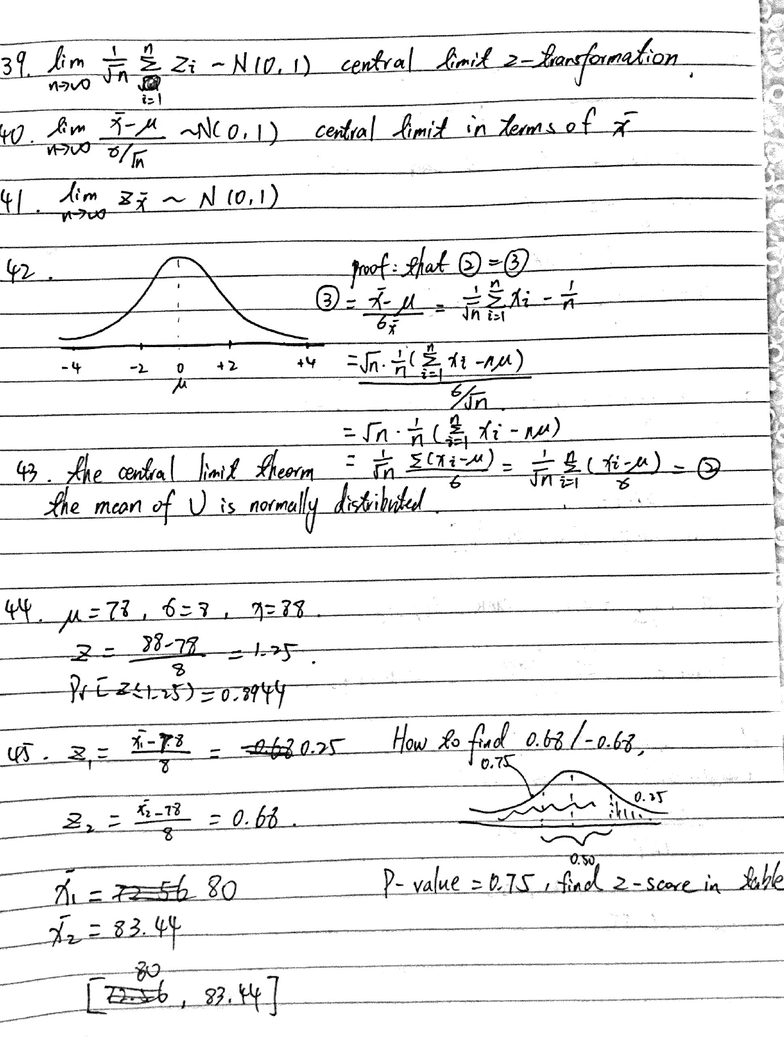 39. lim n→∞ 1/√n Σ i=1 n Zi ~ N(0,1) central limit z-transformation.
40. lim n→∞ x̄-μ / σ/√n ~N(0,1) central limit in terms of x̄
41. lim n→∞ z x̄ ~ N(0,1)
42.
proof: that ② = ③
③ = x̄-μ / σx̄ = 1/√n Σ i=1 n xi - 1/n
-4 -2 0 +2 +4
μ
= √n · 1/n (Σ i=1 n xi - nμ) / σ/√n
= √n · 1/n (Σ i=1 n xi - nμ)
43. the central limit theorm
= 1/√n Σ(xi-μ) / σ = 1/√n Σ i=1 n (xi-μ / σ) = ②
the mean of U is normally distributed.
44. μ=78, σ=8, x=88.
z = 88-78 / 8 = 1.25.
Pr[z≤1.25) = 0.8944
45. z1 = x̄1-78 / 8 = -0.68 0.25 How to find 0.68/-0.68,
0.75
0.25
z2 = x̄2-78 / 8 = 0.68.
0.50
x̄1 = 72.56 80 P-value = 0.75, find z-score in table
x̄2 = 83.44
80
[72.56, 83.44]